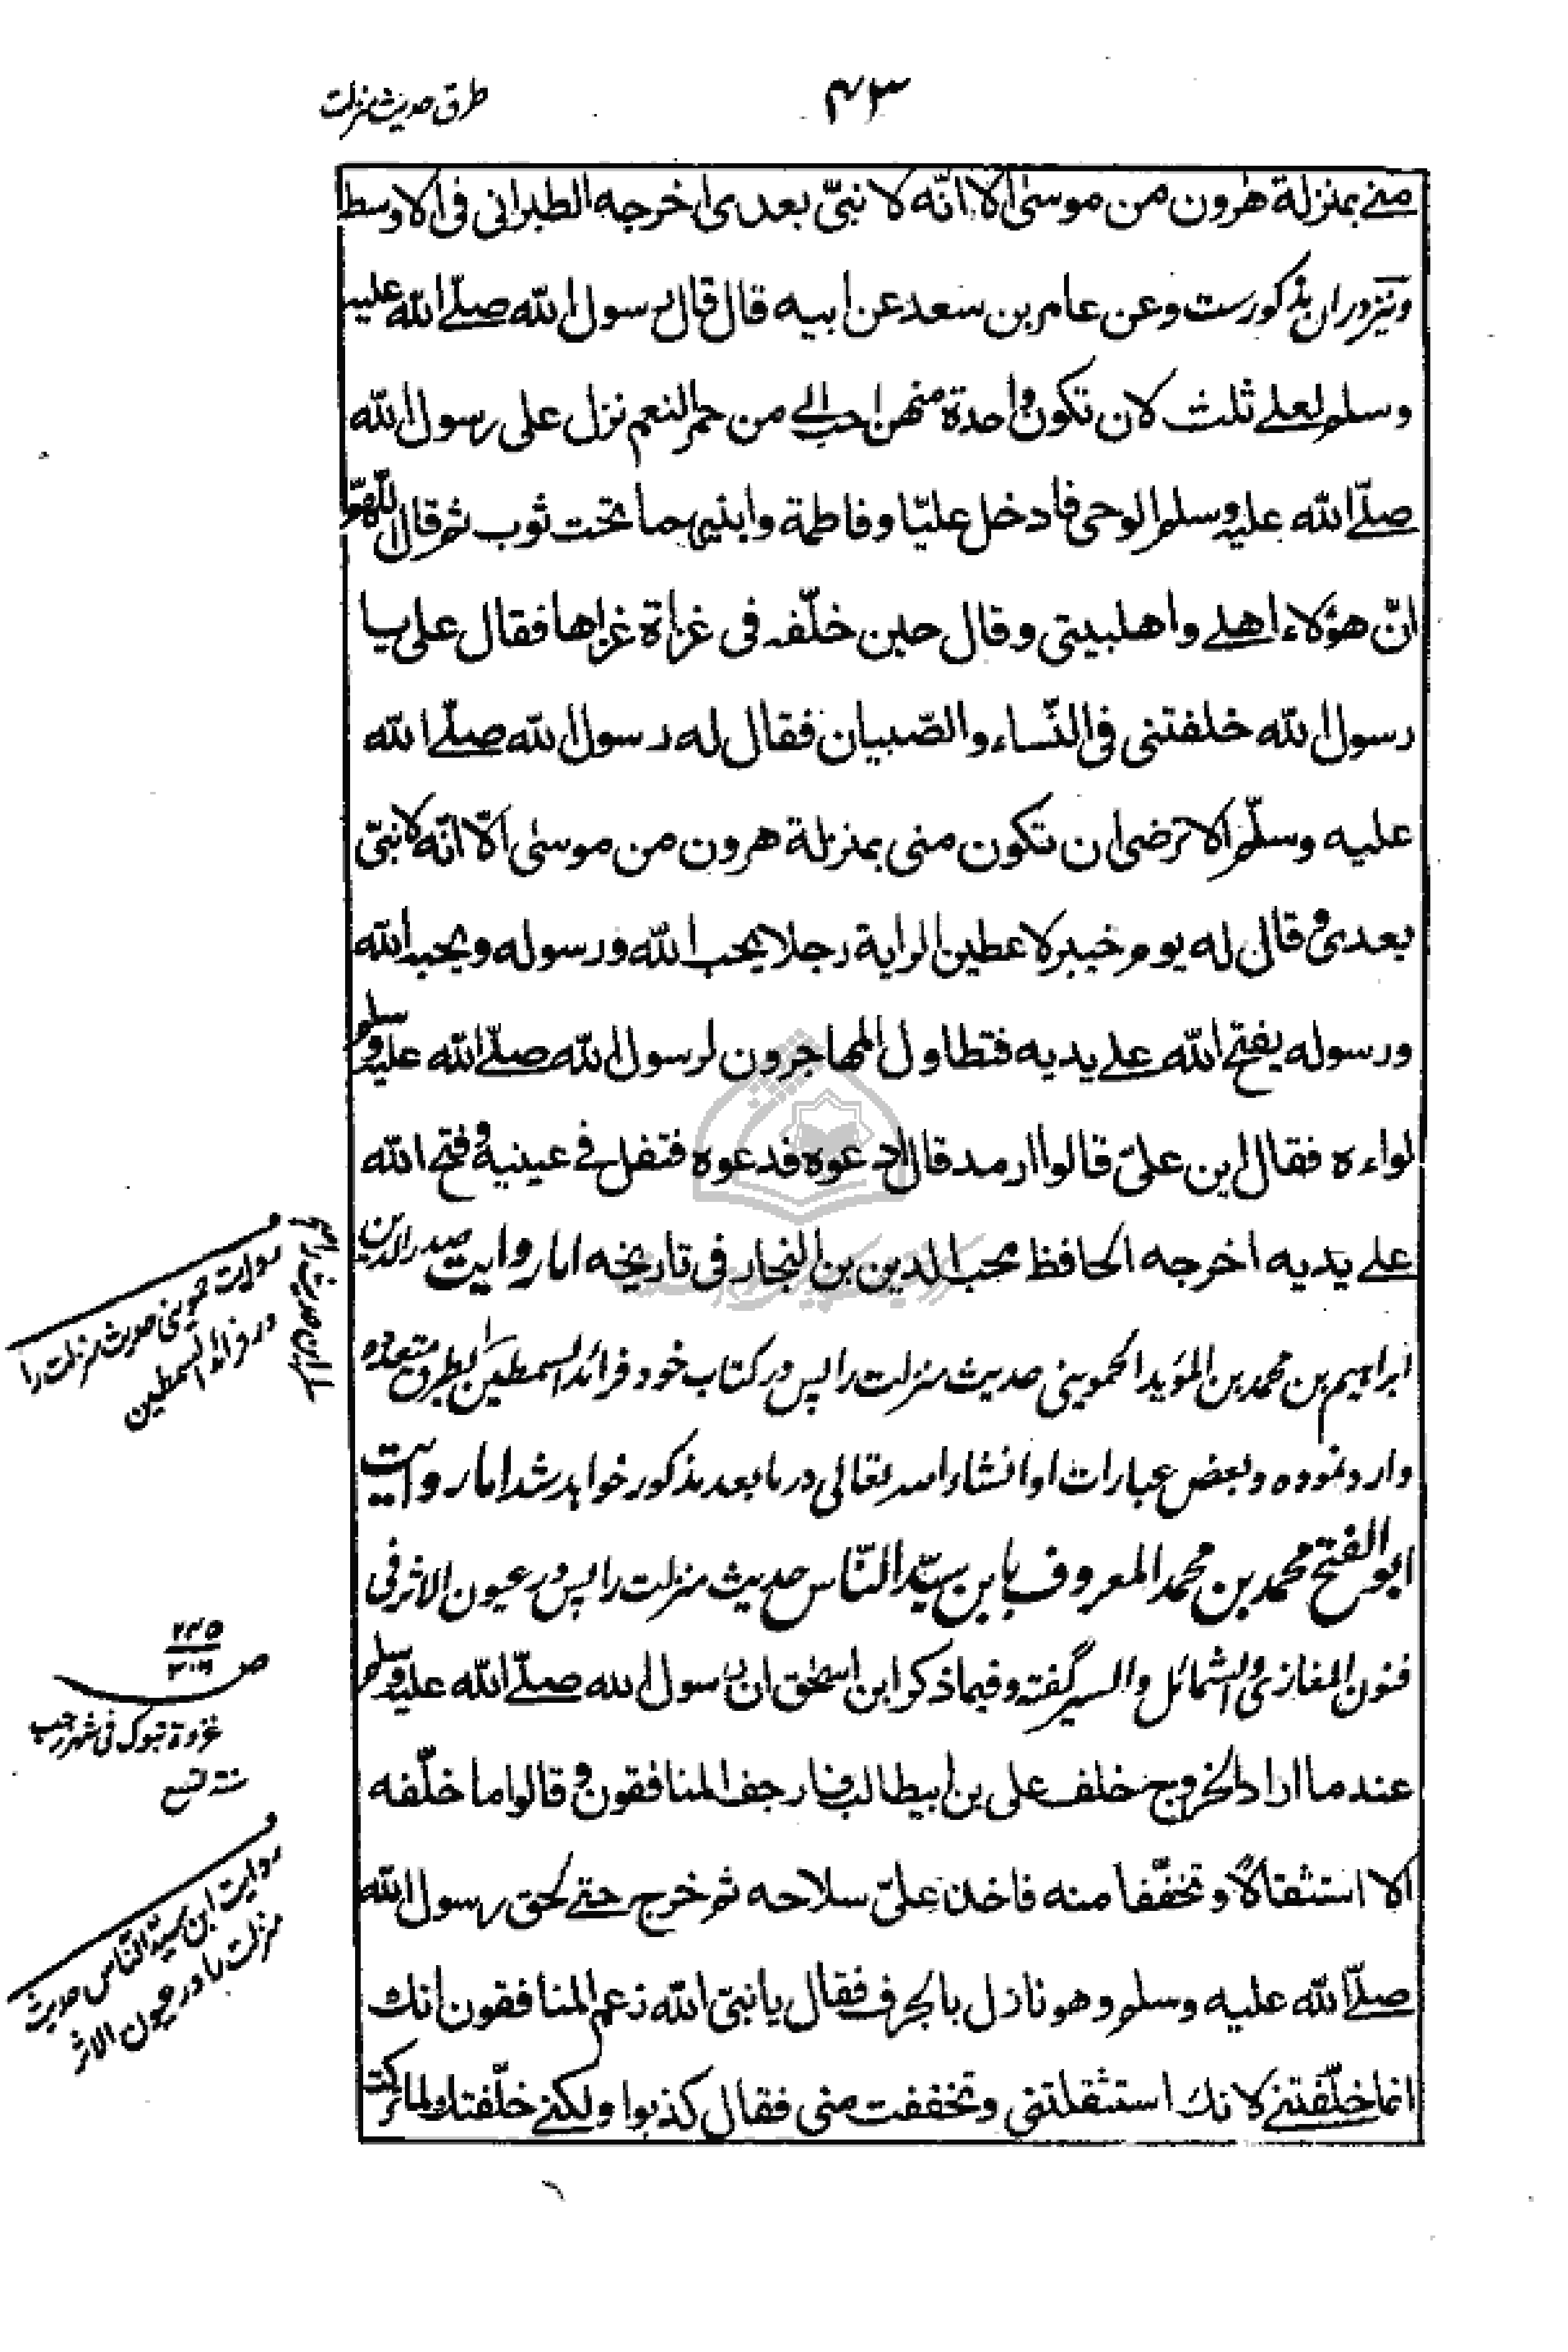 ۴۳
طرق حدیث منزلت
منے بمنزلة هٰرون من موسىٰ الا انّه لا نبیّ بعدی اخرجه الطبرانی فی الاوسط
و نیز دران مذکورست وعن عامر بن سعد عن ابیه قال قال رسول الله صلّے الله علیه
وسلم لعلے ثلث لان تکون واحدة منهن احب الے من حمر النعم نزل علی رسول الله
صلّے الله علیه وسلم الوحی فادخل علیّا وفاطمة وابنیهما تحت ثوب ثم قال اللّهمّ
انّ هؤلاء اهلے واهلبیتی وقال حین خلّفه فی غزاة غزاها فقال علی یا
رسول الله خلفتنی فی النّساء والصّبیان فقال له رسول الله صلّے الله
علیه وسلّم الا ترضی ان تکون منی بمنزلة هرون من موسىٰ الّا انّه لا نبیّ
بعدی وقال له یوم خیبر لاعطین الرایة رجلا یحب الله ورسوله ویحبه الله
ورسوله یفتح الله علے یدیه فتطاول المهاجرون لرسول الله صلّے الله علیه وسلم
لواءه فقال این علیّ قالوا ارمد قال ادعوه فدعوه فتفل فے عینیه وفتح الله
علے یدیه اخرجه الحافظ محب الدین بن النجار فی تاریخه اما روایت صدر الدین
ابراهیم بن محمد بن المؤید الحموینی حدیث منزلت را پس در کتاب خود فرائد السمطین بطرق متعدده
وارد نموده و بعض عبارات او انشاء الله تعالی در ما بعد مذکور خواهد شد اما روایت
ابو الفتح محمد بن محمد المعروف بابن سیّد النّاس حدیث منزلت را پس در عیون الاثر فی
فنون المغازی والشمائل والسیر گفته وفیما ذکر ابن اسحٰق ان رسول الله صلّے الله علیه وسلم
عندما اراد الخروج خلف علی بن ابیطالب فارجف المنافقون وقالوا ما خلّفه
الا استثقالًا وتخفّفا منه فاخذ علیّ سلاحه ثم خرج حتے لحق رسول الله
صلّے الله علیه وسلم وهو نازل بالجرف فقال یا نبیّ الله زعم المنافقون انك
انما خلّفتنے لانك استثقلتنی وتخففت منی فقال کذبوا ولکنے خلّفتك لما ترکت
روایت حموینی حدیث منزلت را
در فرائد السمطین
ص
غزوة تبوك فی شهر رجب
سنة تسع
روایت ابن سیّد النّاس حدیث
منزلت را در عیون الاثر